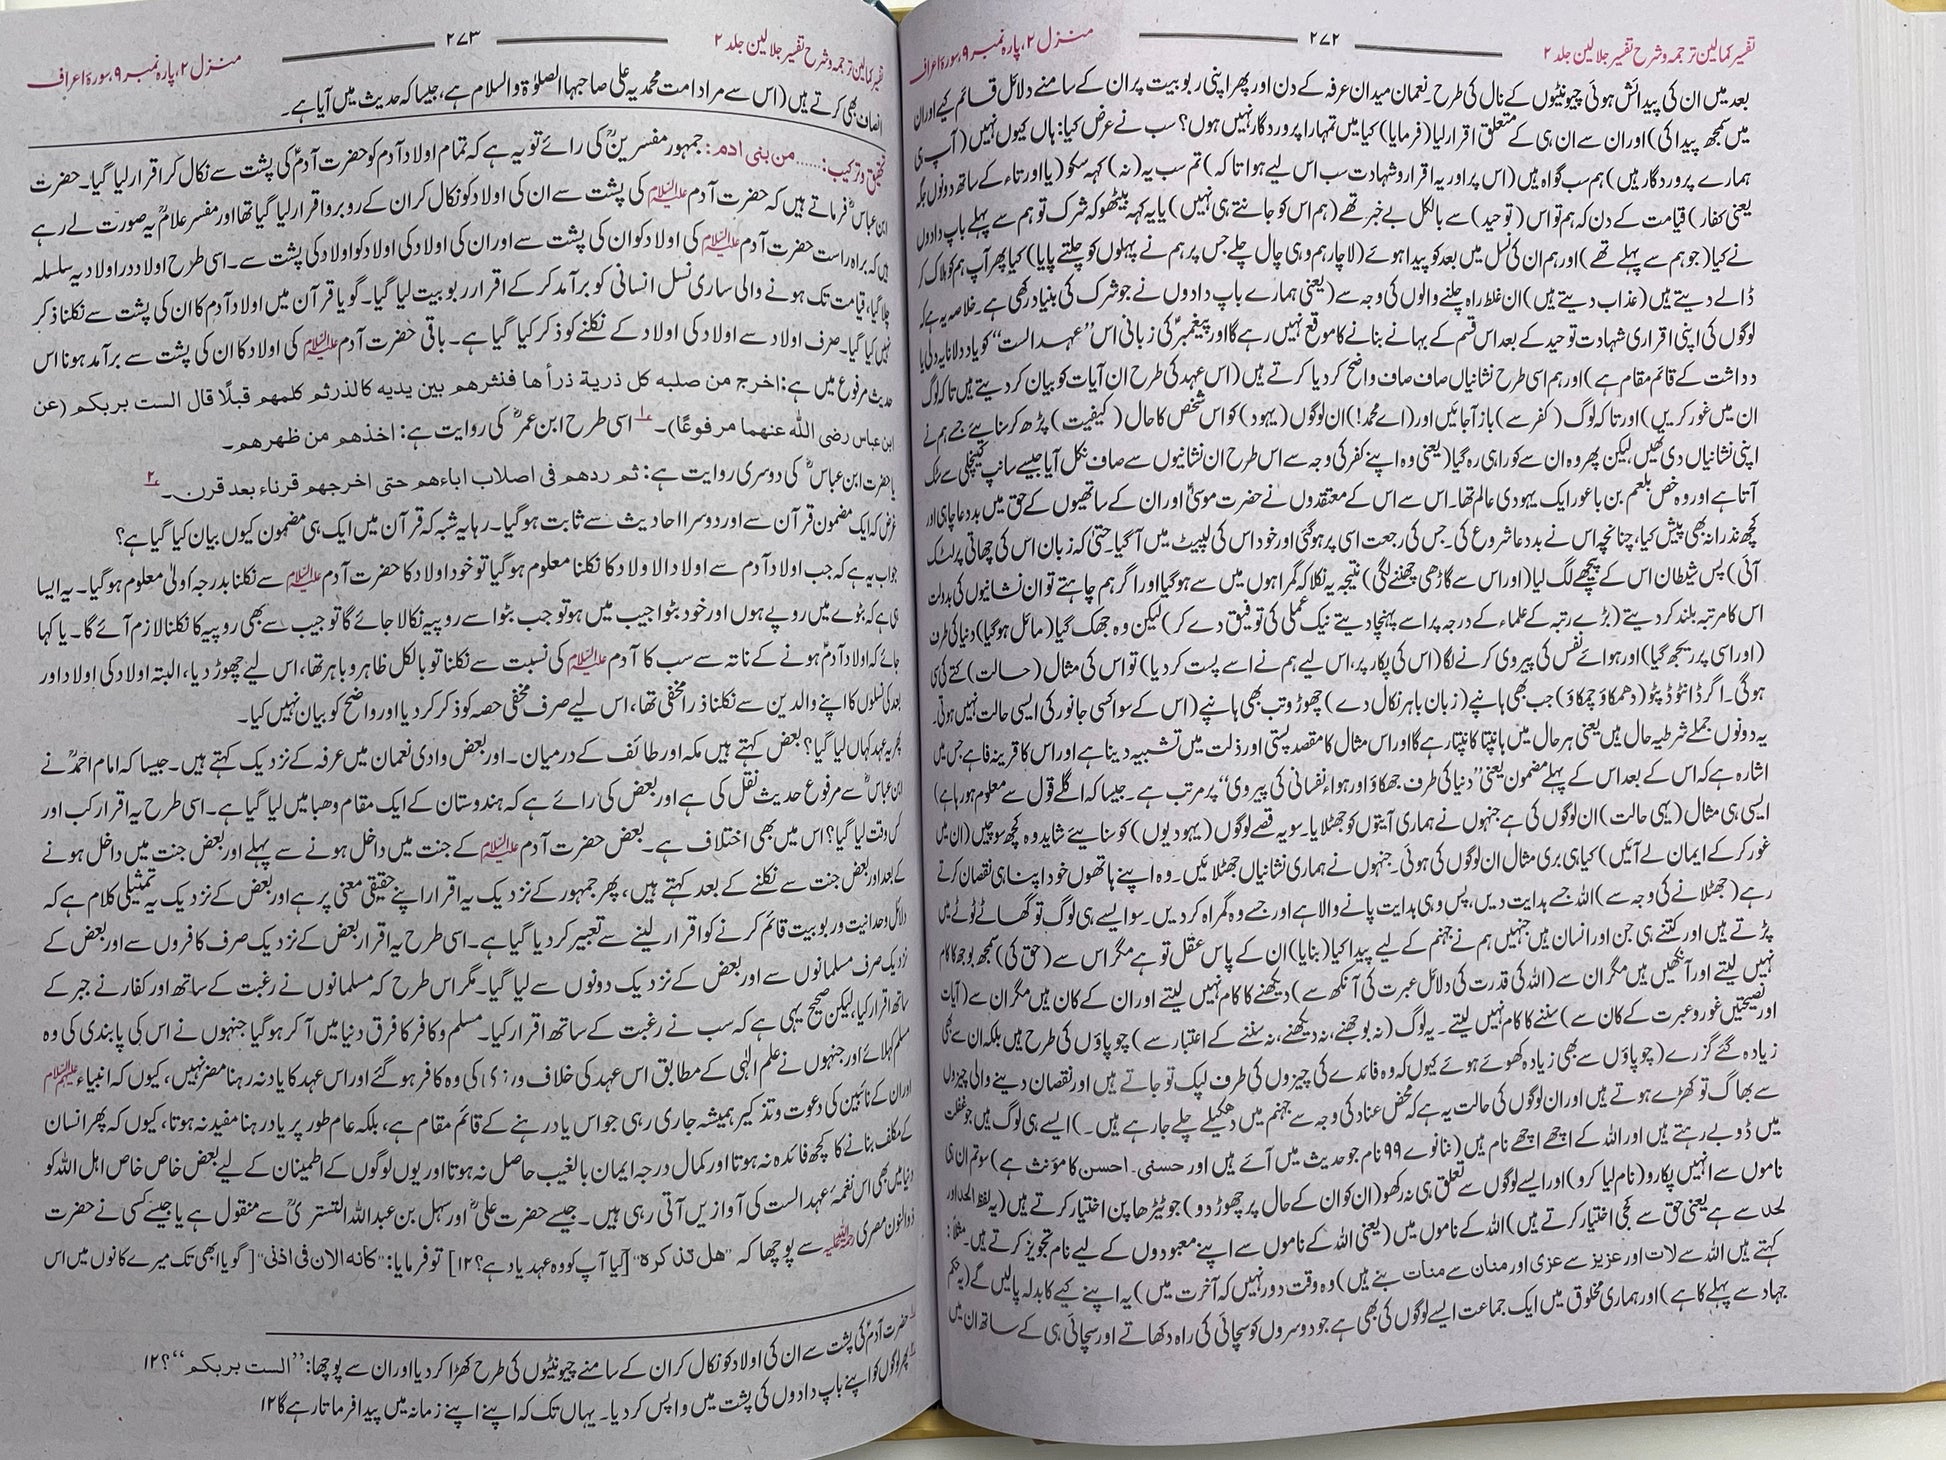 تفسیر کمالین ترجمہ و شرح تفسیر جلالین جلد ۲ ۲۷۲ منزل ۲، پارہ نمبر ۹، سورۂ اعراف
بعد میں ان کی پیدائش ہوئی چیونٹیوں کے نال کی طرح۔ نعمان میدان عرفہ کے دن اور پھر اپنی ربوبیت پر ان کے سامنے دلائل قائم کیے اور ان
میں سمجھ پیدا کی) اور ان سے ان ہی کے متعلق اقرار لیا (فرمایا) کیا میں تمہارا پروردگار نہیں ہوں؟ سب نے عرض کیا: ہاں کیوں نہیں (آپ ہی
ہمارے پروردگار ہیں) ہم سب گواہ ہیں (اس پر اور یہ اقرار و شہادت سب اس لیے ہوا تا کہ) تم سب یہ (نہ) کہہ سکو (یا اور تاء کے ساتھ دونوں جگہ
یعنی کفار) قیامت کے دن کہ ہم تو اس (توحید) سے بالکل بے خبر تھے (ہم اس کو جانتے ہی نہیں) یا یہ کہہ بیٹھو کہ شرک تو ہم سے پہلے باپ دادوں
نے کیا (جو ہم سے پہلے تھے) اور ہم ان کی نسل میں بعد کو پیدا ہوئے (لاچار ہم وہی چال چلے جس پر ہم نے پہلوں کو چلتے پایا) کیا پھر آپ ہم کو ہلاک کر
ڈالے دیتے ہیں (عذاب دیتے ہیں) ان غلط راہ چلنے والوں کی وجہ سے (یعنی ہمارے باپ دادوں نے جو شرک کی بنیاد رکھی ہے۔ خلاصہ یہ ہے کہ
لوگوں کی اپنی اقراری شہادت توحید کے بعد اس قسم کے بہانے بنانے کا موقع نہیں رہے گا اور پیغمبرؐ کی زبانی اس ’’عہد الست‘‘ کو یاد دلانا یہ دلی یا
دداشت کے قائم مقام ہے) اور ہم اسی طرح نشانیاں صاف صاف واضح کر دیا کرتے ہیں (اس عہد کی طرح ان آیات کو بیان کر دیتے ہیں تا کہ لوگ
ان میں غور کریں) اور تا کہ لوگ (کفر سے) باز آجائیں اور (اے محمد!) ان لوگوں (یہود) کو اس شخص کا حال (کیفیت) پڑھ کر سنایئے جسے ہم نے
اپنی نشانیاں دی تھیں، لیکن پھر وہ ان سے کورا ہی رہ گیا (یعنی وہ اپنے کفر کی وجہ سے اس طرح ان نشانیوں سے صاف نکل آیا جیسے سانپ کینچلی سے نکل
آتا ہے اور وہ شخص بلعم بن باعور ایک یہودی عالم تھا۔ اس سے اس کے معتقدوں نے حضرت موسیٰؑ اور ان کے ساتھیوں کے حق میں بددعا چاہی اور
کچھ نذرانہ بھی پیش کیا، چنانچہ اس نے بددعا شروع کی۔ جس کی رجعت اسی پر ہوگئی اور خود اس کی لپیٹ میں آ گیا۔ حتیٰ کہ زبان اس کی چھاتی پر لٹک
آئی) پس شیطان اس کے پیچھے لگ لیا (اور اس سے گاڑھی چھننے لگی) نتیجہ یہ نکلا کہ گمراہوں میں سے ہو گیا اور اگر ہم چاہتے تو ان نشانیوں کی بدولت
اس کا مرتبہ بلند کر دیتے (بڑے رتبہ کے علماء کے درجہ پر اسے پہنچا دیتے نیک عملی کی توفیق دے کر) لیکن وہ جھک گیا (مائل ہو گیا) دنیا کی طرف
(اور اسی پر ریجھ گیا) اور ہوائے نفس کی پیروی کرنے لگا (اس کی پکار پر، اس لیے ہم نے اسے پست کر دیا) تو اس کی مثال (حالت) کتے کی سی
ہوگی۔ اگر ڈانٹو ڈپٹو (دھمکاؤ چمکاؤ) جب بھی ہانپے (زبان باہر نکال دے) چھوڑو تب بھی ہانپے (اس کے سوا کسی جانور کی ایسی حالت نہیں ہوتی۔
یہ دونوں جملے شرطیہ حال ہیں یعنی ہر حال میں ہانپتا کانپتا رہے گا اور اس مثال کا مقصد پستی اور ذلت میں تشبیہ دینا ہے اور اس کا قرینہ فا ہے جس میں
اشارہ ہے کہ اس کے بعد اس کے پہلے مضمون یعنی ’’دنیا کی طرف جھکاؤ اور ہواء نفسانی کی پیروی‘‘ پر مرتب ہے۔ جیسا کہ اگلے قول سے معلوم ہو رہا ہے)
ایسی ہی مثال (یہی حالت) ان لوگوں کی ہے جنہوں نے ہماری آیتوں کو جھٹلایا۔ سو یہ قصے لوگوں (یہودیوں) کو سنایئے شاید وہ کچھ سوچیں (ان میں
غور کر کے ایمان لے آئیں) کیا ہی بری مثال ان لوگوں کی ہوئی۔ جنہوں نے ہماری نشانیاں جھٹلائیں۔ وہ اپنے ہاتھوں خود اپنا ہی نقصان کرتے
رہے (جھٹلانے کی وجہ سے) اللہ جسے ہدایت دیں، پس وہی ہدایت پانے والا ہے اور جسے وہ گمراہ کر دیں۔ سو ایسے ہی لوگ تو گھاٹے ٹوٹے میں
پڑتے ہیں اور کتنے ہی جن اور انسان ہیں جنہیں ہم نے جہنم کے لیے پیدا کیا (بنایا) ان کے پاس عقل تو ہے مگر اس سے (حق کی) سمجھ بوجھ کا کام
نہیں لیتے اور آنکھیں ہیں مگر ان سے (اللہ کی قدرت کی دلائل عبرت کی آنکھ سے) دیکھنے کا کام نہیں لیتے اور ان کے کان ہیں مگر ان سے (آیات
اور نصیحتیں غور و عبرت کے کان سے) سننے کا کام نہیں لیتے۔ یہ لوگ (نہ بوجھنے، نہ دیکھنے، نہ سننے کے اعتبار سے) چوپاؤں کی طرح ہیں بلکہ ان سے بھی
زیادہ گئے گزرے (چوپاؤں سے بھی زیادہ کھوئے ہوئے کیوں کہ وہ فائدے کی چیزوں کی طرف لپک تو جاتے ہیں اور نقصان دینے والی چیزوں
سے بھاگ تو کھڑے ہوتے ہیں اور ان لوگوں کی حالت یہ ہے کہ محض عناد کی وجہ سے جہنم میں دھکیلے چلے جا رہے ہیں۔) ایسے ہی لوگ ہیں جو غفلت
میں ڈوبے رہتے ہیں اور اللہ کے اچھے اچھے نام ہیں (ننانوے ۹۹ نام جو حدیث میں آئے ہیں اور حسنی۔ احسن کا مؤنث ہے) سو تم ان ہی
ناموں سے انہیں پکارو (نام لیا کرو) اور ایسے لوگوں سے تعلق ہی نہ رکھو (ان کو ان کے حال پر چھوڑ دو) جو ٹیڑھا پن اختیار کرتے ہیں (یہ لفظ الحد اور
لحد سے ہے یعنی حق سے کجی اختیار کرتے ہیں) اللہ کے ناموں میں (یعنی اللہ کے ناموں سے اپنے معبودوں کے لیے نام تجویز کرتے ہیں۔ مثلاً:
کہتے ہیں اللہ سے لات اور عزیز سے عزی اور منان سے منات بنے ہیں) وہ وقت دور نہیں کہ آخرت میں) یہ اپنے کیے کا بدلہ پالیں گے (یہ حکم
جہاد سے پہلے کا ہے) اور ہماری مخلوق میں ایک جماعت ایسے لوگوں کی بھی ہے جو دوسروں کو سچائی کی راہ دکھاتے اور سچائی ہی کے ساتھ ان میں
تفسیر کمالین ترجمہ و شرح تفسیر جلالین جلد ۲ ۲۷۳ منزل ۲، پارہ نمبر ۹، سورۂ اعراف
انصاف بھی کرتے ہیں (اس سے مراد امت محمدیہ علی صاحبہا الصلوٰۃ والسلام ہے، جیسا کہ حدیث میں آیا ہے۔
تحقیق و ترکیب: ...... من بنی ادم: جمہور مفسرینؒ کی رائے تو یہ ہے کہ تمام اولاد آدم کو حضرت آدمؑ کی پشت سے نکال کر اقرار لیا گیا۔ حضرت
ابن عباسؓ فرماتے ہیں کہ حضرت آدم علیہ السلام کی پشت سے ان کی اولاد کو نکال کر ان کے روبرو اقرار لیا گیا تھا اور مفسر علامؒ یہ صورت لے رہے
ہیں کہ براہ راست حضرت آدم علیہ السلام کی اولاد کو ان کی پشت سے اور ان کی اولاد کی اولاد کو اولاد کی پشت سے۔ اسی طرح اولاد در اولاد یہ سلسلہ
چلا گیا، قیامت تک ہونے والی ساری نسل انسانی کو برآمد کر کے اقرار ربوبیت لیا گیا۔ گویا قرآن میں اولاد آدم کا ان کی پشت سے نکلنا ذکر
نہیں کیا گیا۔ صرف اولاد سے اولاد کی اولاد کے نکلنے کو ذکر کیا گیا ہے۔ باقی حضرت آدم علیہ السلام کی اولاد کا ان کی پشت سے برآمد ہونا اس
حدیث مرفوع میں ہے: اخرج من صلبه كل ذرية ذرأ ها فنثرهم بين يديه كالذرثم كلمهم قبلًا قال الست بربكم (عن
ابن عباس رضى الله عنهما مرفوعًا)۔ ۱؎ اسی طرح ابن عمرؓ کی روایت ہے: اخذهم من ظهرهم۔
یا حضرت ابن عباسؓ کی دوسری روایت ہے: ثم ردهم فى اصلاب اباءهم حتى اخرجهم قرناء بعد قرن۔ ۲؎
غرض کہ ایک مضمون قرآن سے اور دوسرا احادیث سے ثابت ہو گیا۔ رہا یہ شبہ کہ قرآن میں ایک ہی مضمون کیوں بیان کیا گیا ہے؟
جواب یہ ہے کہ جب اولاد آدم سے اولاد الاولاد کا نکلنا معلوم ہو گیا تو خود اولاد کا حضرت آدم علیہ السلام سے نکلنا بدرجہ اولیٰ معلوم ہو گیا۔ یہ ایسا
ہی ہے کہ بٹوے میں روپے ہوں اور خود بٹوا جیب میں ہو تو جب بٹوا سے روپیہ نکالا جائے گا تو جیب سے بھی روپیہ کا نکلنا لازم آئے گا۔ یا کہا
جائے کہ اولاد آدمؑ ہونے کے ناتہ سے سب کا آدم علیہ السلام کی نسبت سے نکلنا تو بالکل ظاہر و باہر تھا، اس لیے چھوڑ دیا، البتہ اولاد کی اولاد اور
بعد کی نسلوں کا اپنے والدین سے نکلنا ذرا مخفی تھا، اس لیے صرف مخفی حصہ کو ذکر کر دیا اور واضح کو بیان نہیں کیا۔
پھر یہ عہد کہاں لیا گیا؟ بعض کہتے ہیں مکہ اور طائف کے درمیان۔ اور بعض وادی نعمان میں عرفہ کے نزدیک کہتے ہیں۔ جیسا کہ امام احمدؒ نے
ابن عباسؓ سے مرفوع حدیث نقل کی ہے اور بعض کی رائے ہے کہ ہندوستان کے ایک مقام وھبا میں لیا گیا ہے۔ اسی طرح یہ اقرار کب اور
کس وقت لیا گیا؟ اس میں بھی اختلاف ہے۔ بعض حضرت آدم علیہ السلام کے جنت میں داخل ہونے سے پہلے اور بعض جنت میں داخل ہونے
کے بعد اور بعض جنت سے نکلنے کے بعد کہتے ہیں، پھر جمہور کے نزدیک یہ اقرار اپنے حقیقی معنی پر ہے اور بعض کے نزدیک یہ تمثیلی کلام ہے کہ
دلائل وحدانیت و ربوبیت قائم کرنے کو اقرار لینے سے تعبیر کر دیا گیا ہے۔ اسی طرح یہ اقرار بعض کے نزدیک صرف کافروں سے اور بعض کے
نزدیک صرف مسلمانوں سے اور بعض کے نزدیک دونوں سے لیا گیا۔ مگر اس طرح کہ مسلمانوں نے رغبت کے ساتھ اور کفار نے جبر کے
ساتھ اقرار کیا، لیکن صحیح یہی ہے کہ سب نے رغبت کے ساتھ اقرار کیا۔ مسلم و کافر کا فرق دنیا میں آ کر ہو گیا جنہوں نے اس کی پابندی کی وہ
مسلم کہلائے اور جنہوں نے علم الٰہی کے مطابق اس عہد کی خلاف ورزی کی وہ کافر ہو گئے اور اس عہد کا یاد نہ رہنا مضر نہیں، کیوں کہ انبیاء علیہم السلام
اور ان کے نائبین کی دعوت و تذکیر ہمیشہ جاری رہی جو اس یاد رہنے کے قائم مقام ہے، بلکہ عام طور پر یاد رہنا مفید نہ ہوتا، کیوں کہ پھر انسان
کے مکلف بنانے کا کچھ فائدہ نہ ہوتا اور کمال درجہ ایمان بالغیب حاصل نہ ہوتا اور یوں لوگوں کے اطمینان کے لیے بعض خاص خاص اہل اللہ کو
دنیا میں بھی اس نغمۂ عہد الست کی آوازیں آتی رہی ہیں۔ جیسے حضرت علیؓ اور سہل بن عبد اللہ التستریؒ سے منقول ہے یا جیسے کسی نے حضرت
ذوالنون مصری رحمۃ اللہ علیہ سے پوچھا کہ ’’هل تذكره‘‘ [کیا آپ کو وہ عہد یاد ہے؟ ۱۲] تو فرمایا: ’’كانه الان فى اذنى‘‘ [گویا ابھی تک میرے کانوں میں اس
۱؎ حضرت آدمؑ کی پشت سے ان کی اولاد کو نکال کر ان کے سامنے چیونٹیوں کی طرح کھڑا کر دیا اور ان سے پوچھا: ’’الست بربكم‘‘؟ ۱۲
۲؎ پھر لوگوں کو اپنے باپ دادوں کی پشت میں واپس کر دیا۔ یہاں تک کہ اپنے اپنے زمانہ میں پیدا فرماتا رہے گا ۱۲